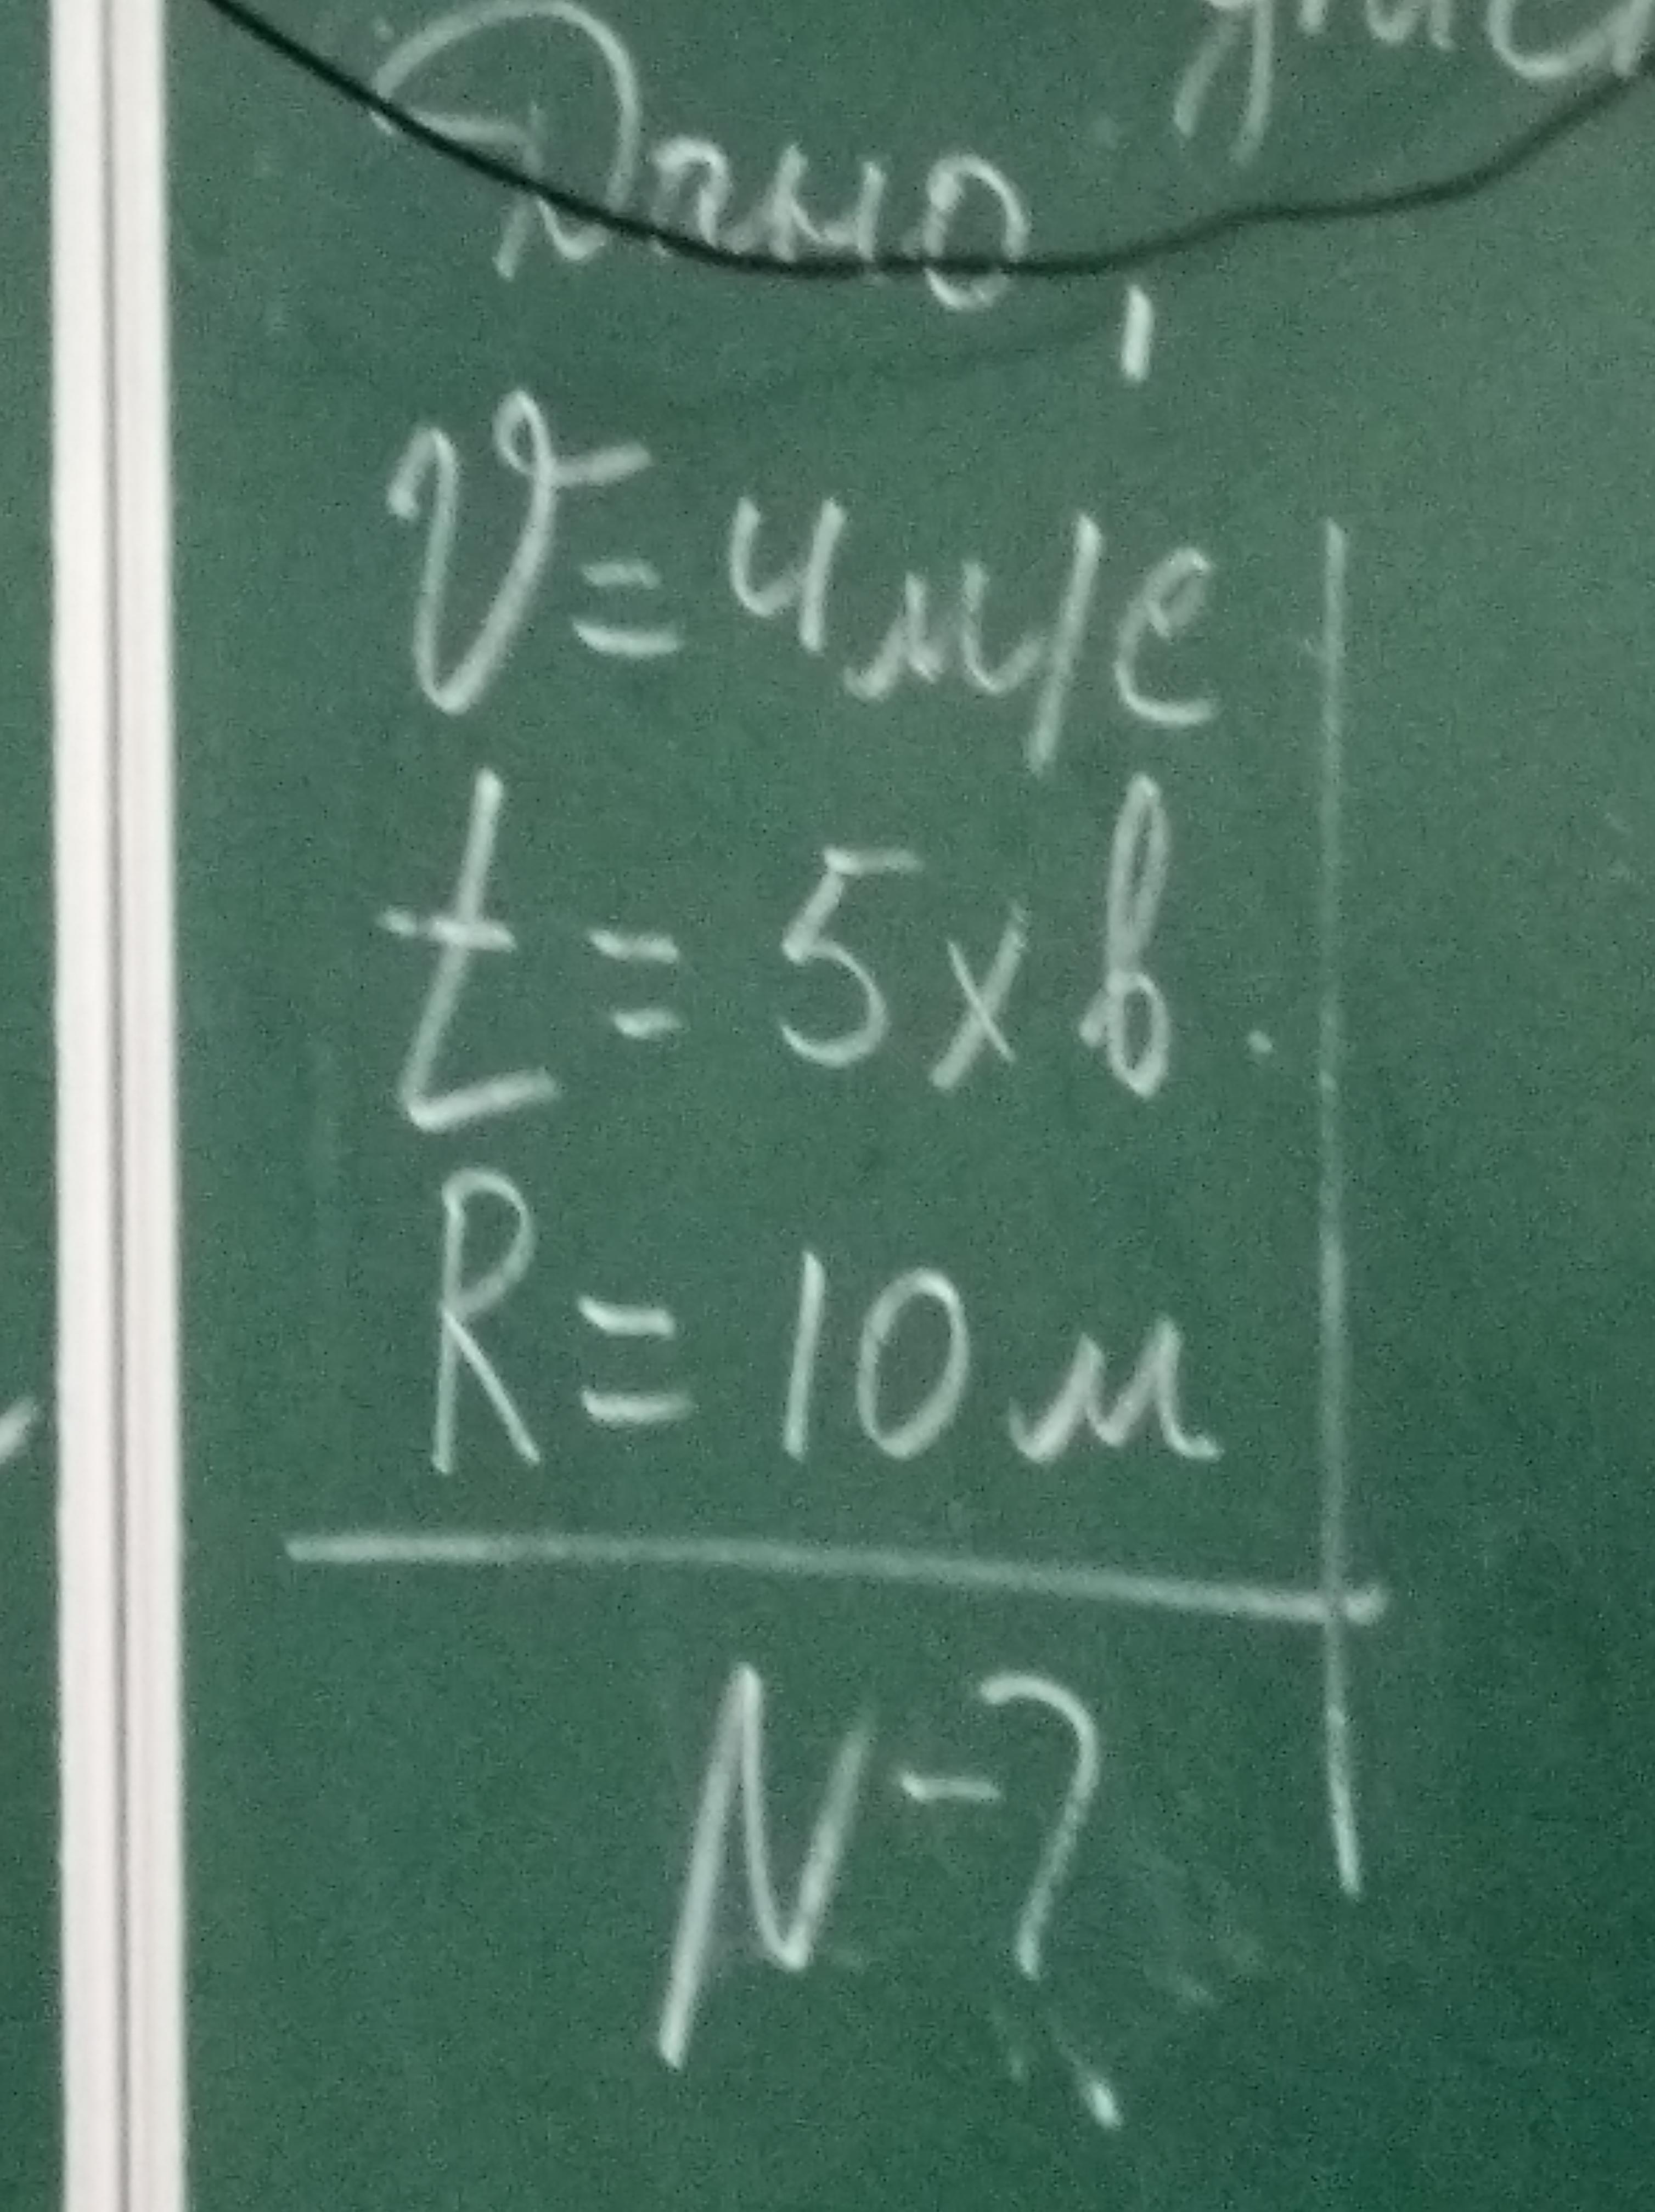 Дано,
v = 4 м/с
t = 5 хв.
R = 10 м
N - ?